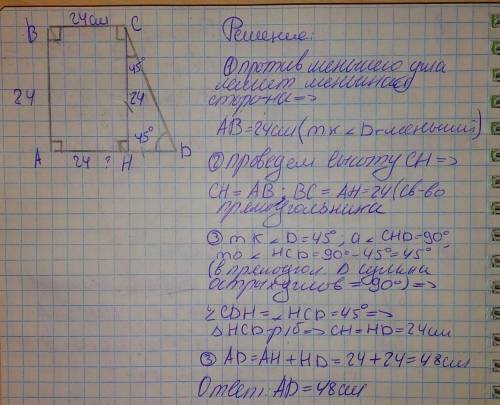 24см
B
C
45°
24
24
45°
A
24
?
H
D
Решение:
① против меньшего угла
лежит меньшая
сторона =>
AB=24см (тк ∠D-меньший)
② проведем высоту CH =>
CH = AB; BC = AH=24 (св-во
прямоугольника
③ тк ∠D=45°; а ∠CHD=90°,
то ∠HCD=90°-45°=45°
(в прямоугол. Δ сумма
острых углов = 90°) =>
∠CDH=∠HCD=45° =>
ΔHCD-р/б => CH=HD=24см
③ AD=AH+HD=24+24=48см
Ответ: AD=48см